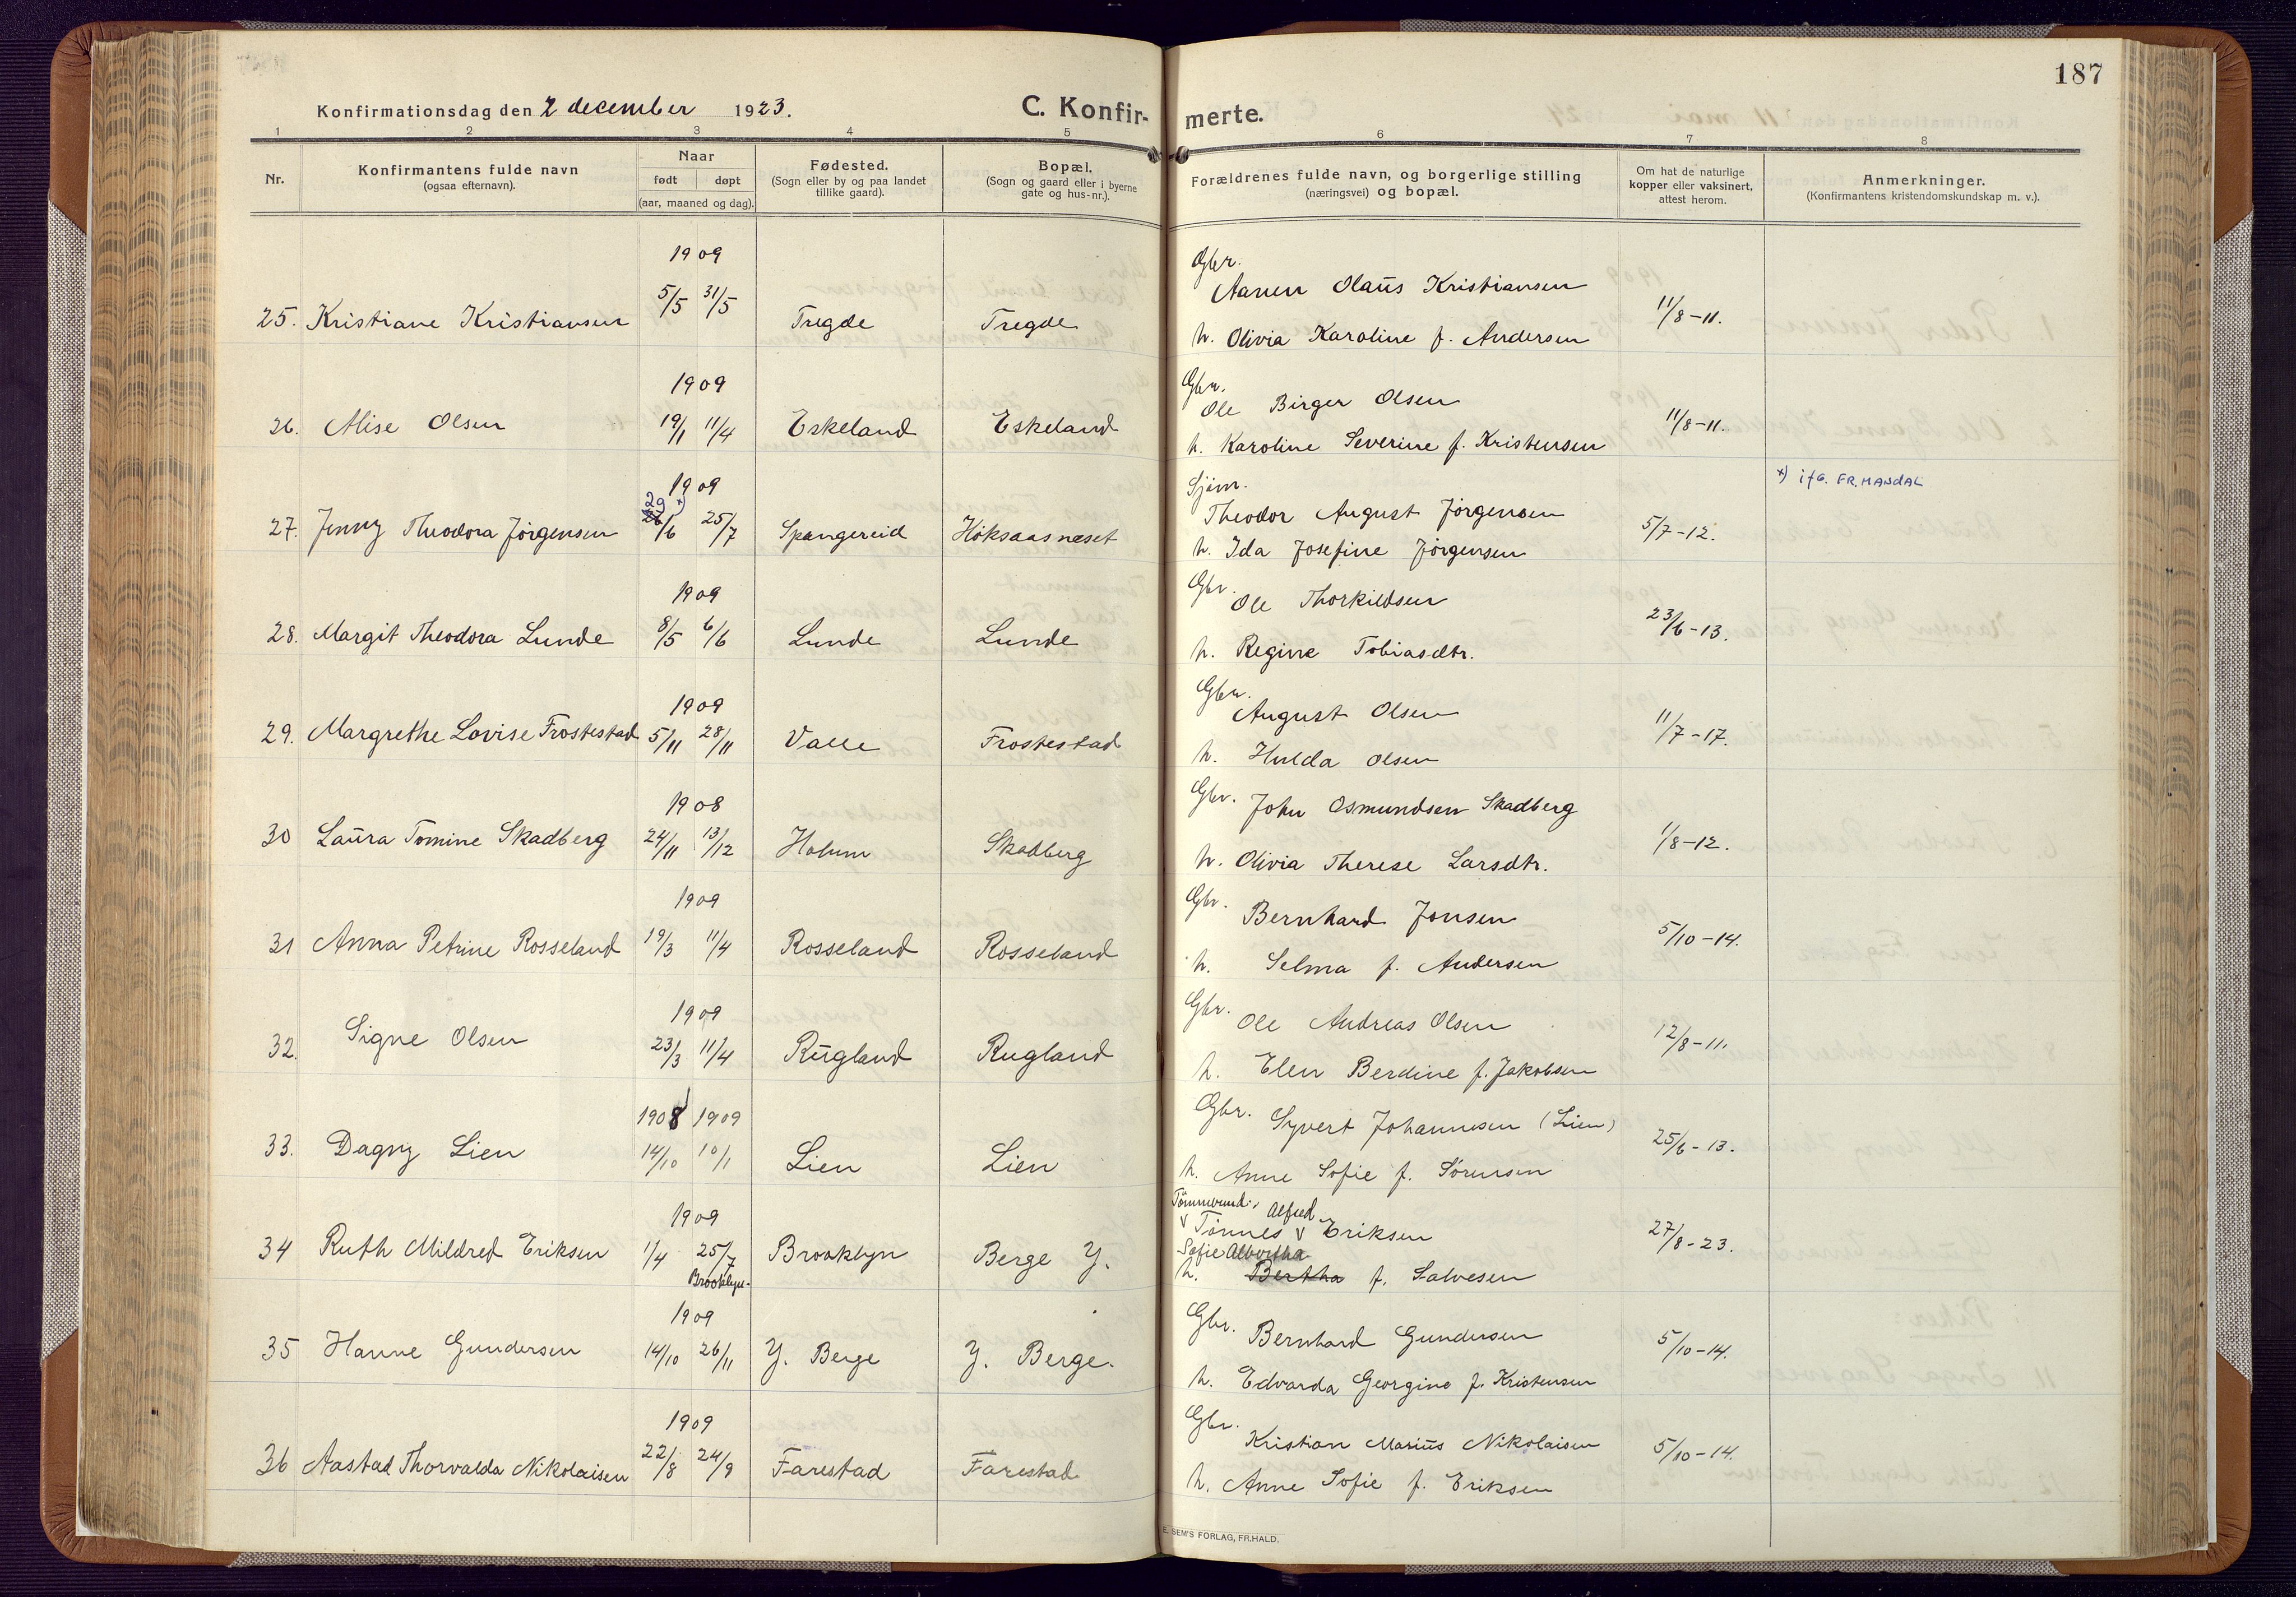 187
Konfirmationsdag den 2 december 1923.
C. Konfir-
merte.
1 2 3 4 5 6 7 8
Nr.
Konfirmantens fulde navn
(ogsaa efternavn).
Naar
født døpt
(aar, maaned og dag).
Fødested.
(Sogn eller by og paa landet
tillike gaard).
Bopæl.
(Sogn og gaard eller i byerne
gate og hus-nr.).
Forældrenes fulde navn, og borgerlige stilling
(næringsvei) og bopæl.
Om hat de naturlige
kopper eller vaksinert,
attest herom.
Anmerkninger.
(Konfirmantens kristendomskundskap m. v.).
1909
Gbr.
Aanen Olaus Kristiansen
25. Kristiane Kristiansen 5/5 31/5 Tregde Tregde 11/8-11.
h. Olivia Karoline f. Andersen
1909
Gbr.
Ole Birger Olsen
26. Alise Olsen 19/1 11/4 Eskeland Eskeland 11/8-11.
h. Karoline Severine f. Kristensen
1909
Sjøm.
x) ifG. FR. MANDAL
29 x)
Theodor August Jørgensen
27. Jenny Theodora Jørgensen 26/6 25/7 Spangereid Höksaasnæset 5/7-12.
h. Ida Josefine Jørgensen
1909
Gbr.
Ole Thorkildsen
28. Margit Theodora Lunde 8/5 6/6 Lunde Lunde 23/6-13.
h. Regine Tobiasdtr.
1909
Gbr.
August Olsen
29. Margrethe Lovise Frostestad 5/11 28/11 Valle Frostestad 11/7-17.
h. Hulda Olsen
1908
Gbr. John Osmundsen Skadberg
30 Laura Tomine Skadberg 24/11 13/12 Holum Skadberg 1/8-12.
h. Olivia Therese Larsdtr.
1909
Gbr.
Bernhard Jonsen
31 Anna Petrine Rosseland 19/3 11/4 Rosseland Rosseland 5/10-14.
h. Selma f. Andersen
1909
Gbr.
Ole Andreas Olsen
32. Signe Olsen 23/3 11/4 Rugland Rugland 12/8-11.
h. Elen Berdine f. Jakobsen
1908 1909
Gbr. Syvert Johannesen (Lien)
33. Dagny Lien 14/10 10/1 Lien Lien 25/6-13.
h. Anne Sofie f. Sørensen
1909
Alfred
Tønnes v Eriksen
34 Ruth Mildred Eriksen 1/4 25/7 Brooklyn Berge Y. 27/8-23.
Brooklyn.
Sofie Albertha
h. Bertha f. Salvesen
1909
Gbr. Bernhard Gundersen
35 Hanne Gundersen 14/10 26/11 Y. Berge Y. Berge. 5/10-14.
h. Edvarda Georgine f. Kristensen
1909
Gbr.
Kristian Marius Nikolaisen
36 Aastad Thorvalda Nikolaisen 22/8 24/9 Farestad Farestad 5/10-14.
h. Anne Sofie f. Eriksen
E. SEM'S FORLAG, FR.HALD.